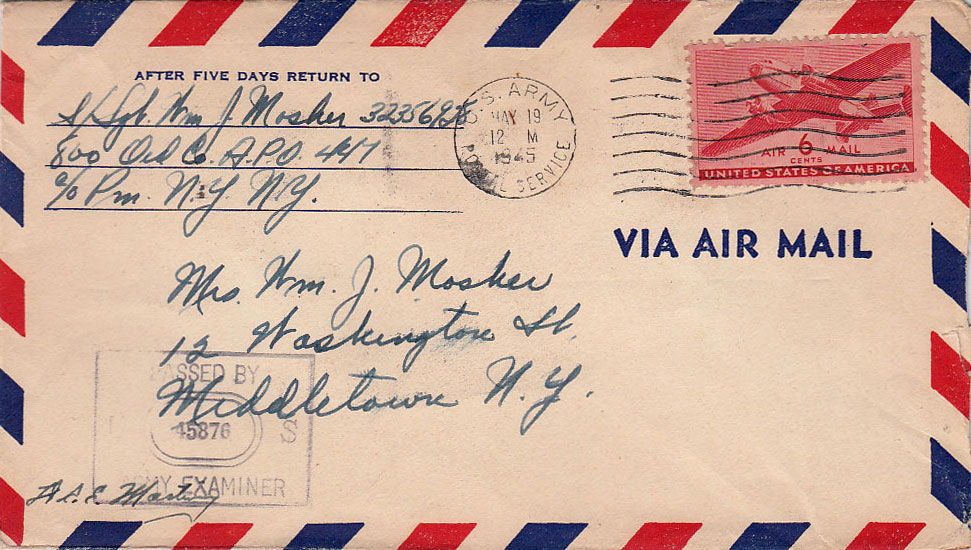 AFTER FIVE DAYS RETURN TO
S/Sgt. Wm J. Mosher
800 Ord Co. A.P.O. 447
c/o Pm. N.Y. N.Y.
U.S. ARMY
MAY 19
12 M
1945
POSTAL SERVICE
AIR 6 MAIL
CENTS
UNITED STATES OF AMERICA
VIA AIR MAIL
Mrs. Wm. J. Mosher
12 Washington St.
Middletown N.Y.
PASSED BY
45876 S
ARMY EXAMINER